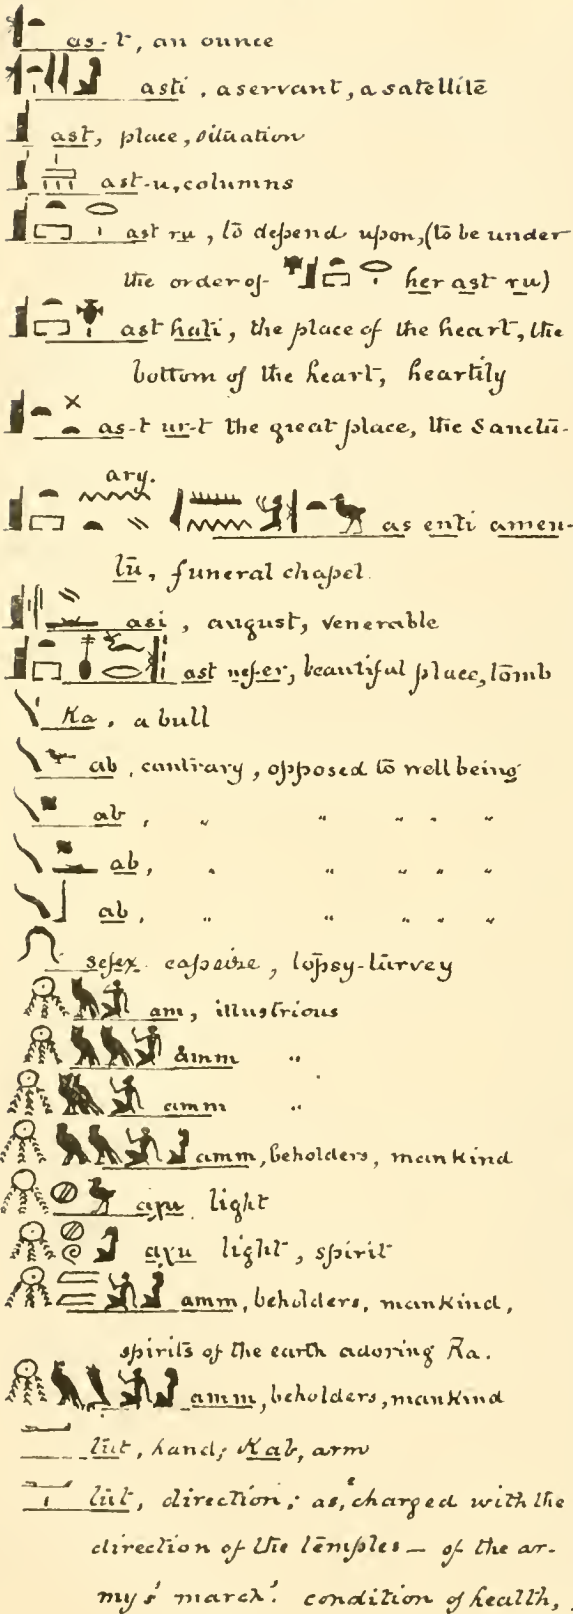 as-t, an ounce
asti, a servant, a satellite
ast, place, situation
ast-u, columns
ast ru, to depend upon, (to be under
the order of her ast ru)
ast hati, the place of the heart, the
bottom of the heart, heartily
as-t ur-t the great place, the Sanctu-
ary.
as enti amen-
tu, funeral chapel.
asi, august, venerable
ast nefer, beautiful place, tomb
Ka, a bull
ab, contrary, opposed to well being
ab, " " " " "
ab, " " " " "
ab, " " " " "
sefex capsize, topsy-turvey
am, illustrious
amm "
amm "
amm, beholders, mankind
aχu light
aχu light, spirit
amm, beholders, mankind,
spirits of the earth adoring Ra.
amm, beholders, mankind
tut, hand; Kab, arm
tut, direction; as, "charged with the
direction of the temples — of the ar-
my's march". condition of health,